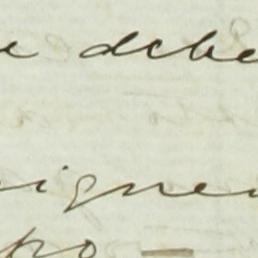 e debe
igne
po —